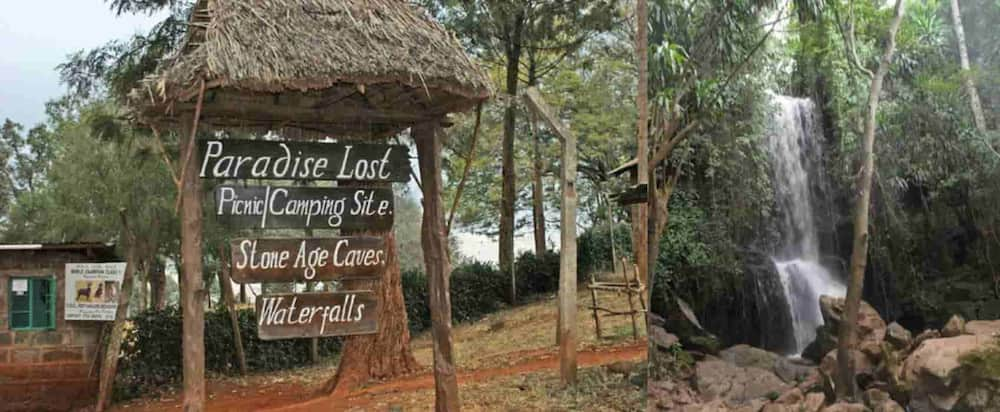 Paradise Lost
Picnic/Camping Site.
Stone Age Caves.
Waterfalls